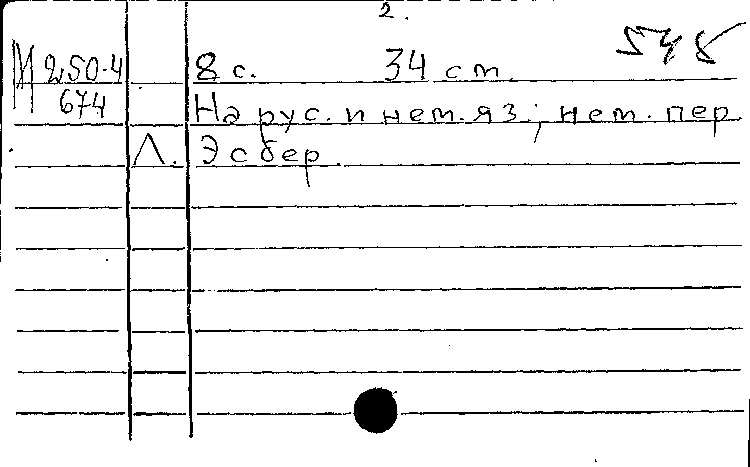 2.
М 250-4 8 с. 34 см.
674 На рус. и нем. яз.; нем. пер.
Л. Эсбер.